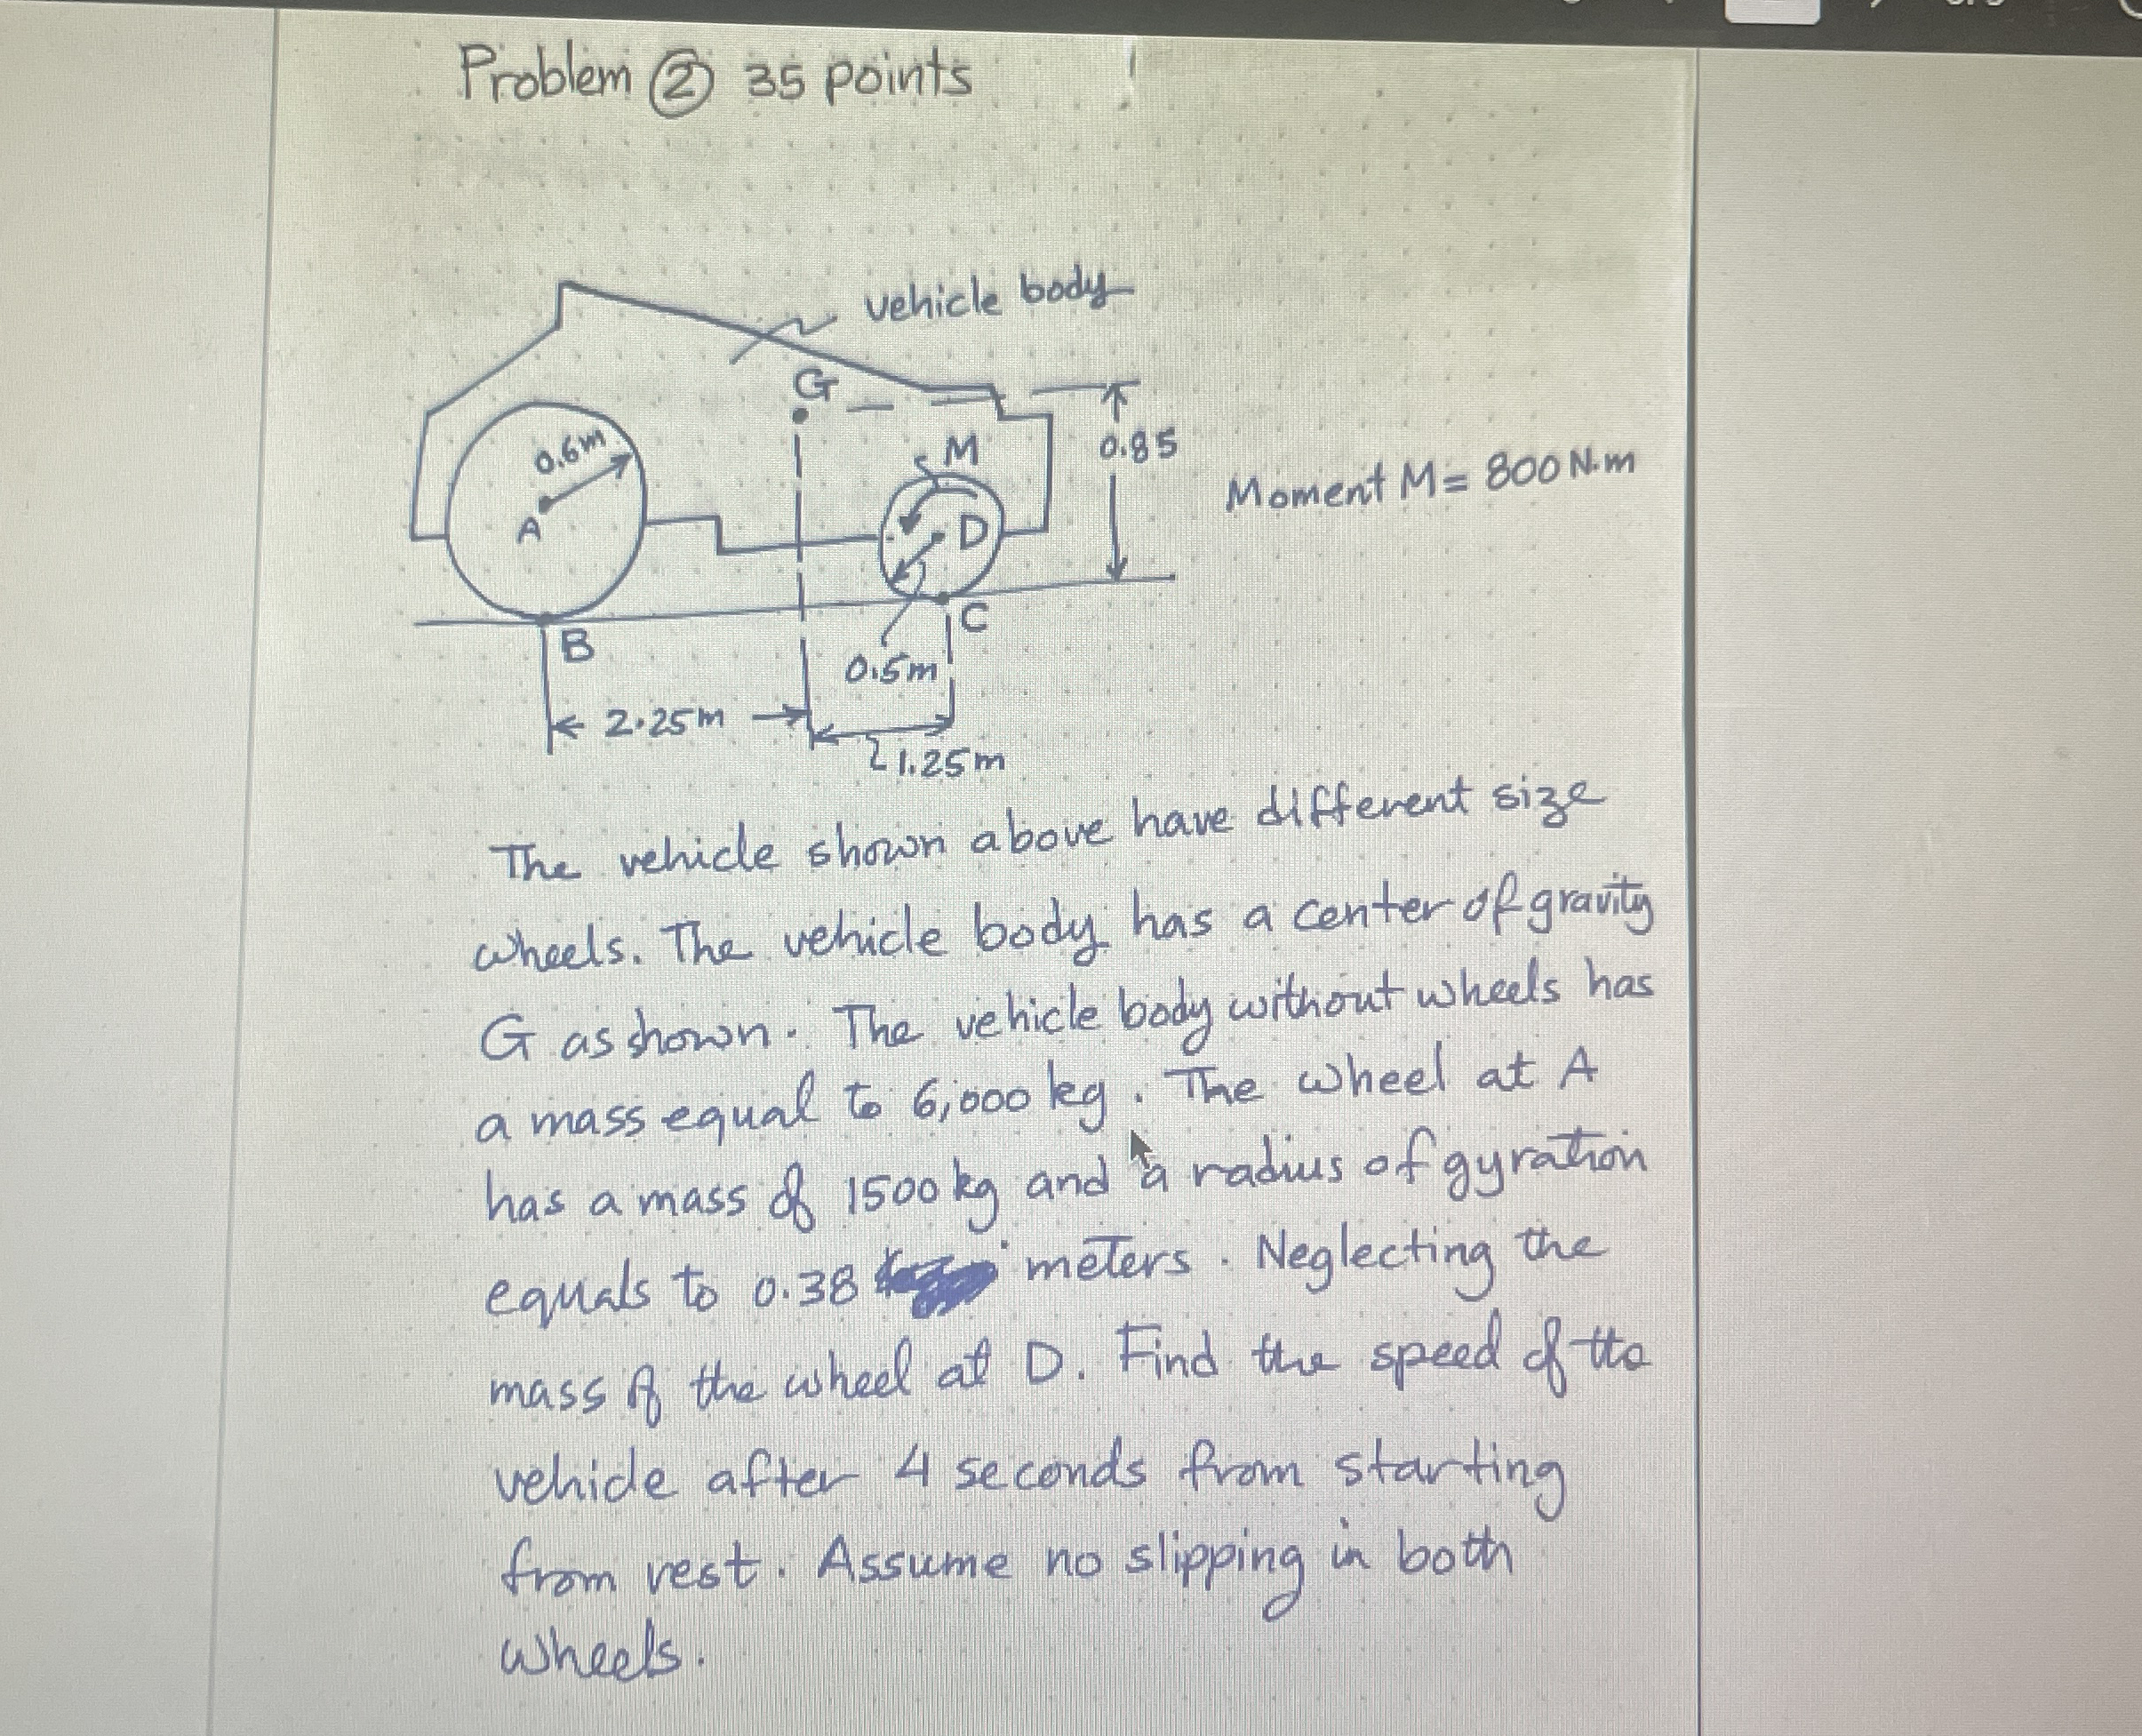 Problem ② 35 points
vehicle body
G
0.6m
M
0.85
Moment M = 800 N·m
A
D
B
C
0.5m
2.25m
1.25m
The vehicle shown above have different size
wheels. The vehicle body has a center of gravity
G as shown. The vehicle body without wheels has
a mass equal to 6,000 kg. The wheel at A
has a mass of 1500 kg and a radius of gyration
equals to 0.38 meters. Neglecting the
mass of the wheel at D. Find the speed of the
vehicle after 4 seconds from starting
from rest. Assume no slipping in both
wheels.